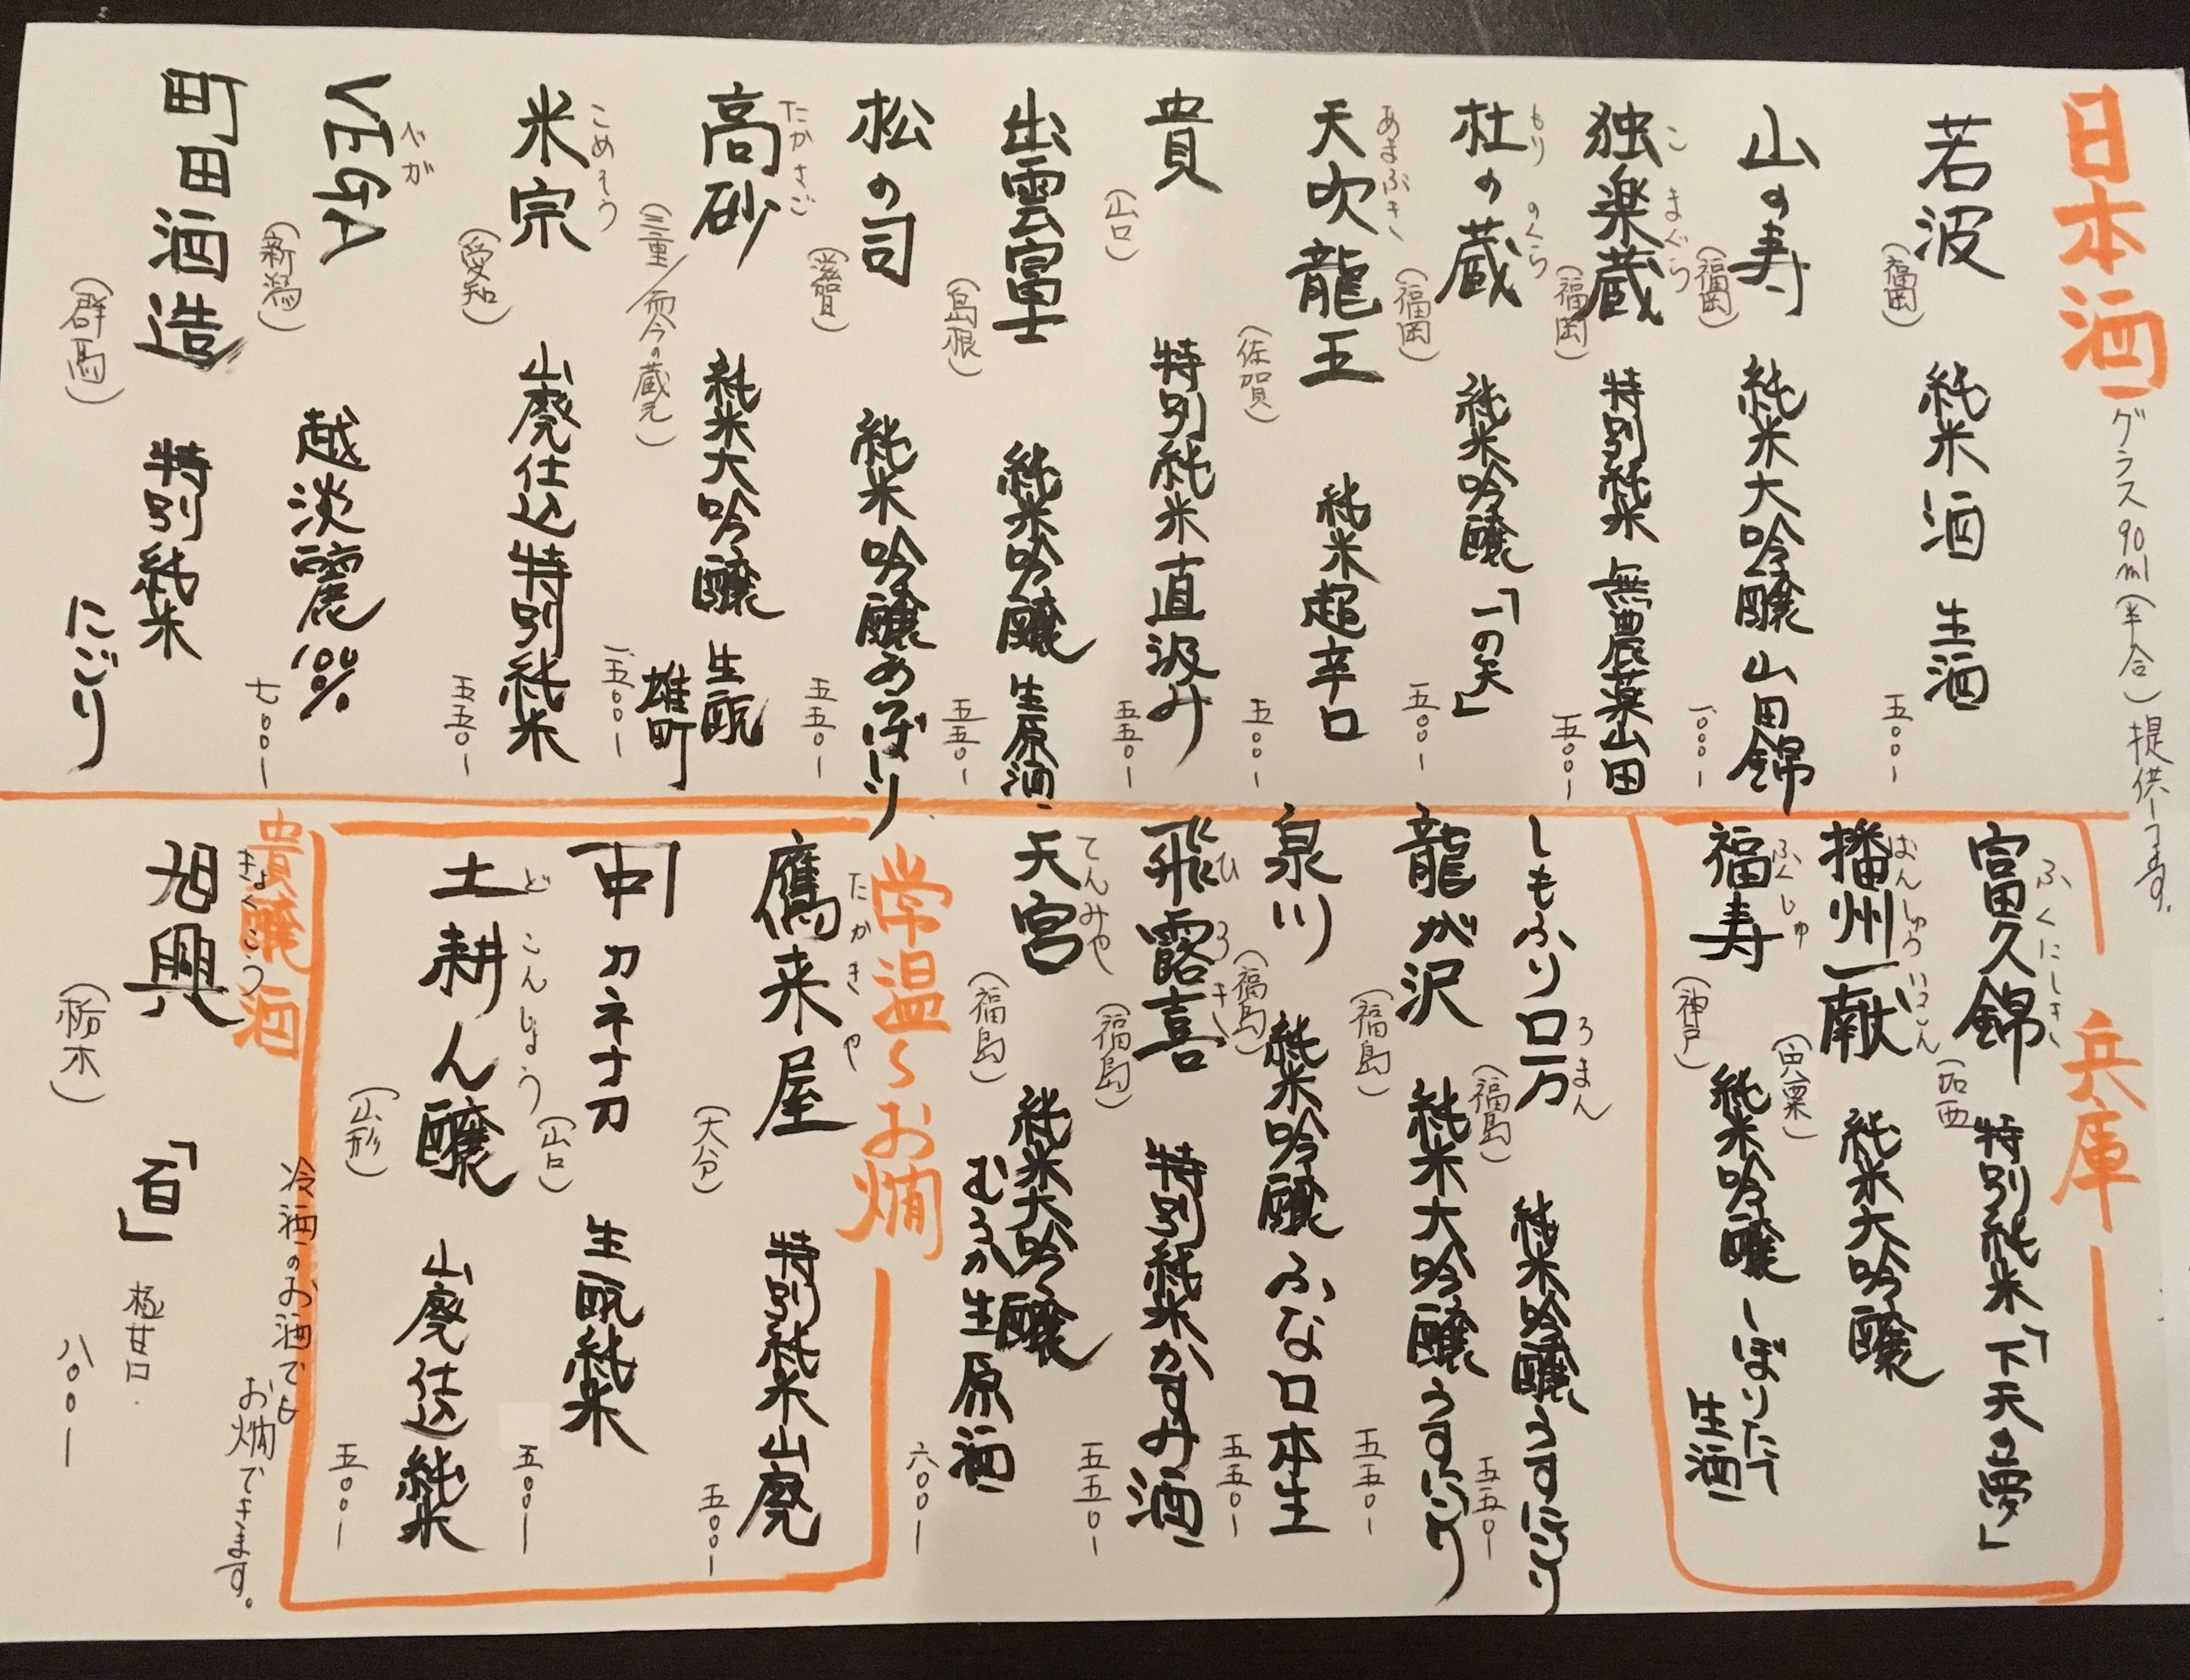 日本酒
グラス90ml(半合)提供します。
若波 純米酒 生酒
(福岡) 五〇〇ー
山の寿 純米大吟醸 山田錦
(福岡) 一、〇〇〇ー
独楽蔵 特別純米 無農薬山田
こまぐら
(福岡) 五〇〇ー
杜の蔵 純米吟醸「一の矢」
もりのくら
(福岡) 五〇〇ー
天吹龍王 純米超辛口
あまぶき
(佐賀) 五〇〇ー
貴 特別純米直汲み
(山口) 五五〇ー
出雲富士 純米吟醸 生原酒
(島根) 五五〇ー
松の司 純米吟醸あらばしり
(滋賀) 五五〇ー
高砂 純米大吟醸 生酛
たかさご
雄町
(三重/而今の蔵元) 一、五〇〇ー
米宗 山廃仕込特別純米
こめそう
(愛知) 五五〇ー
VEGA 越淡麗100%
べが
(新潟) 七〇〇ー
町田酒造 特別純米
にごり
(群馬)
兵庫
富久錦 特別純米「下天の夢」
ふくにしき
(加西)
播州一献 純米大吟醸
ばんしゅういっこん
(宍粟)
福寿 純米吟醸しぼりたて
ふくじゅ
生酒
(神戸)
しもふりロ万 純米吟醸うすにごり
ろまん
(福島) 五五〇ー
龍が沢 純米大吟醸うすにごり
(福島) 五五〇ー
泉川 純米吟醸ふな口本生
(福島) 五五〇ー
飛露喜 特別純米かすみ酒
ひろき
(福島) 五五〇ー
天宮 純米大吟醸
てんみや
むろか生原酒
(福島) 六〇〇ー
常温〜お燗
鷹来屋 特別純米山廃
たかきや
(大分) 五〇〇ー
カネナカ 生酛純米
(山口) 五〇〇ー
土耕ん醸 山廃仕込純米
どこんじょう
(山形) 五〇〇ー
冷酒のお酒でも
お燗できます。
貴醸酒
旭興 「百」 極甘口
きょくこう
(栃木) 八〇〇ー